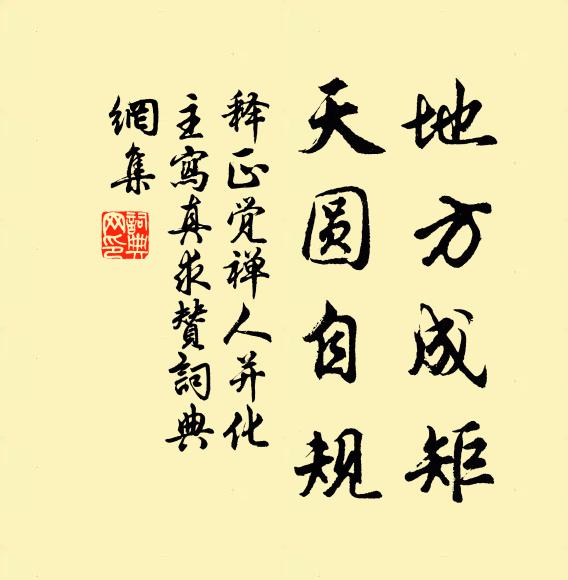 地方成矩
天圆自规
释正觉禅人并化
主寫真求贊詞典
網集
詞典网印